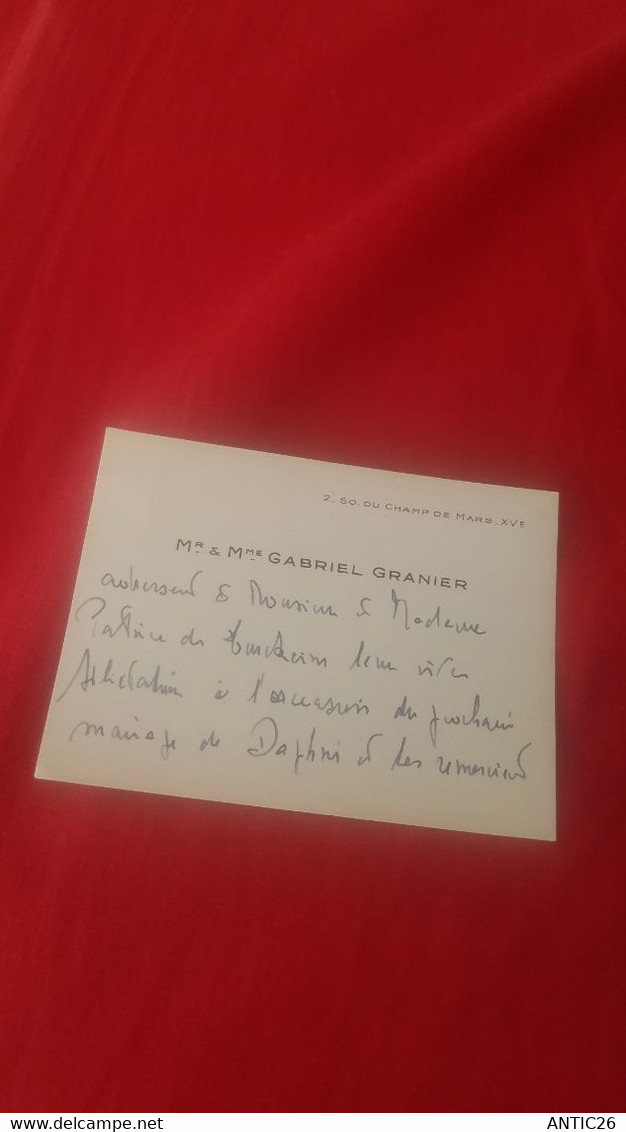 2. SQ. DU CHAMP DE MARS. XVE
MR. & MME GABRIEL GRANIER
adressent à Monsieur & Madame
Patrice de leur vives
félicitations à l'occasion du prochain
mariage de Daphné et les remercient
www.delcampe.net
ANTIC26